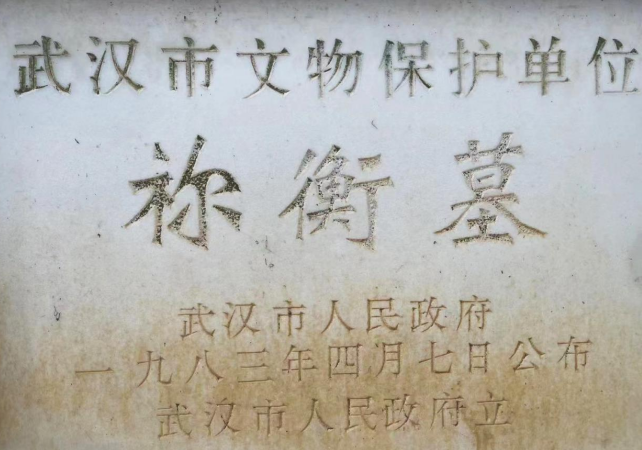 武汉市文物保护单位
祢衡墓
武汉市人民政府
一九八三年四月七日公布
武汉市人民政府立